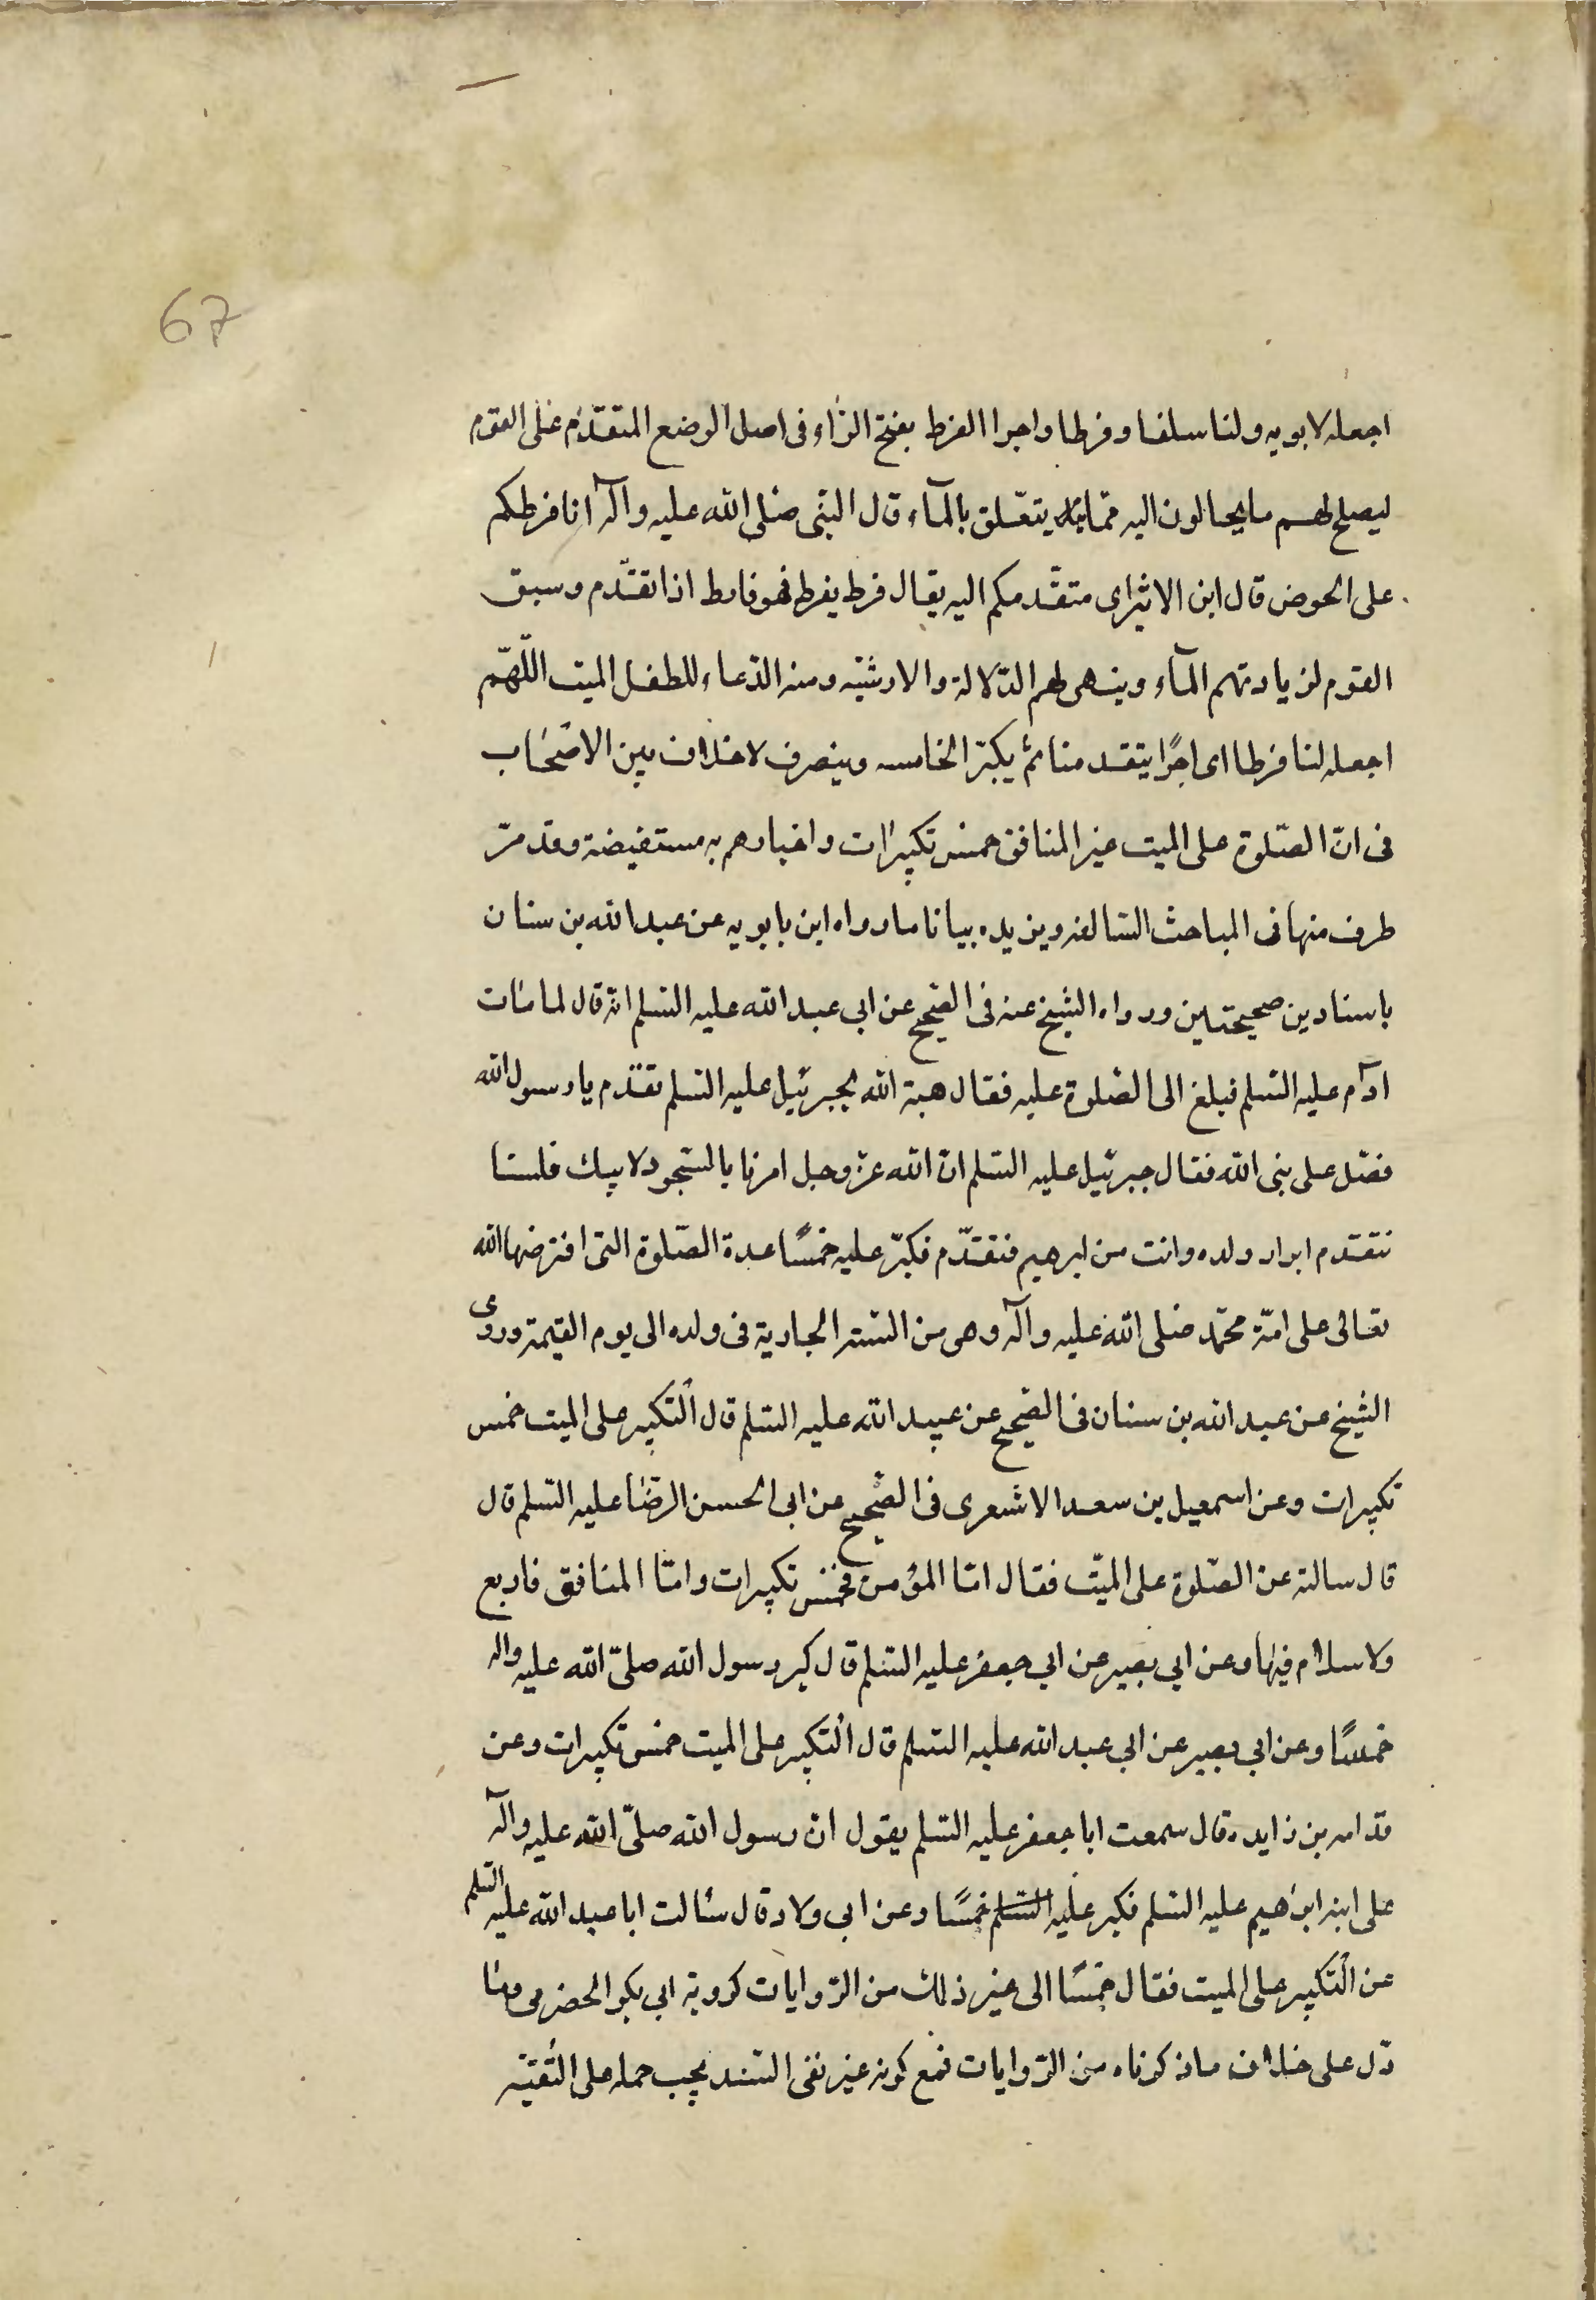 67
اجعله لابويه ولنا سلفا وفرطا واجرا الفرط بفتح الرّاء فى اصل الوضع المتقدّم على القوم
ليصلح لهم ما يحتالون اليه ممّا يتعلق بالمآء قال النبّى صلى الله عليه وآله انا فرطكم
على الحوض قال ابن الاثير اى متقدّمكم اليه يقال فرط يفرط فهو فارط اذا تقدّم وسبق
القوم لزيادتهم المآء ويهى لهم الدّلالة والارشيه ومنه الدّعاء للطفل الميت اللّهمّ
اجعله لنا فرطا اى اجرًا يتقدمنا ثم يكبّر الخامسه وينصرف لا خلاف بين الاصحاب
فى انّ الصّلوة على الميت غير المنافق خمس تكبيرات واخبارهم به مستفيضة وقد مرّ
طرف منها فى المباحث السّالفه ويزيده بيانا ما رواه ابن بابويه عن عبد الله بن سنان
باسنادين صحيحتين ورواه الشيخ عنه فى الصّحيح عن ابى عبد الله عليه السّلم انّه قال لما مات
ادآم عليه السّلم فبلغ الى الصّلوة عليه فقال هبة الله لجبرئيل عليه السّلم تقدّم يا رسول الله
فصّل على نبى الله فقال جبرئيل عليه السّلم انّ الله عزّ وجل امرنا بالسّجود لابيك فلسنا
نتقدم ابرار ولده وانت من ابرهيم فتقدّم فكبّر عليه خمسًا عدة الصّلوة التى افترضها الله
تعالى على امّة محمّد صلى الله عليه وآله وهى من السّنه الجارية فى ولده الى يوم القيمة وروى
الشيخ عن عبد الله بن سنان فى الصّحيح عن عبيد الله عليه السّلم قال التكبير على الميت خمس
تكبيرات وعن اسمعيل بن سعد الاشعرى فى الصّحيح عن ابى الحسن الرضا عليه السّلم قال
قال سالته عن الصّلوة على الميّت فقال امّا المؤمن فخمس تكبيرات وامّا المنافق فاربع
ولا سلام فيها وعن ابي بصير عن ابي جعفر عليه السّلم قال كبر رسول الله صلىّ الله عليه واله
خمسًا وعن ابي بصير عن ابي عبد الله عليه السّلم قال التكبير على الميت خمس تكبيرات وعن
قدامه بن زايده قال سمعت ابا جعفر عليه السّلم يقول انّ رسول الله صلىّ الله عليه وآله
على ابنه ابرهيم عليه السّلم فكبر عليه السّلم خمسًا وعن ابى ولاد قال سئالت ابا عبد الله عليه السّلم
عن التكبير على الميت فقال خمسًا الى غير ذلك من الرّوايات كروية ابي بكر الحضرمى وما
دّل على خلاف ما ذكرناه من الرّوايات فمع كونه غير نقى السّند يجب حمله على التّقيّه